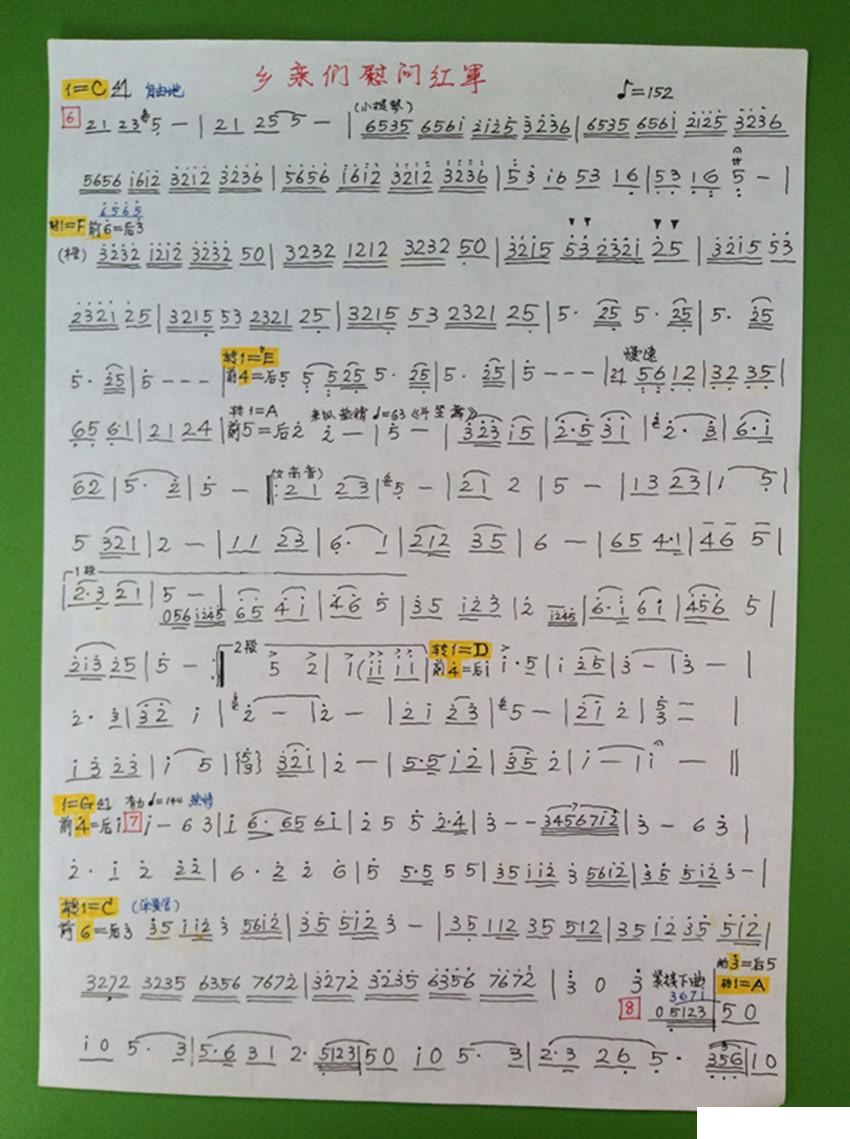 乡亲们慰问红军
1=C 4/4 自由地 ♪=152
6 21 235 — | 21 255 — | (小提琴) 6535 656i 2i25 3236 | 6535 656i 2125 3236
5656 i6i2 3212 3236 | 5656 i6i2 3212 3236 | 53 i6 53 16 | 53 16 5 — |
6565
转1=F 前6=后3
3232 1212 3232 50 | 3232 1212 3232 50 | 32i5 53 232i 25 | 3215 53
2321 25 | 3215 53 2321 25 | 3215 53 2321 25 | 5· 25 5· 25 | 5· 25
转1=E 慢速
5· 25 | 5 - - - | 前4=后5 5 525 5· 25 | 5· 25 | 5 - - - | 2/4 56 12 | 32 35 |
转1=A 热情 ♩=63
65 61 | 21 24 | 前5=后2 2 — | 5 — | 323 i5 | 2·5 3i | 2· 3 | 6·i
(女高音)
62 | 5· 2 | 5 — ‖: 21 23 | 5 — | 21 2 | 5 — | 13 23 | 1 5 |
5 321 | 2 — | 11 23 | 6· 1 | 212 35 | 6 — | 65 4·1 | 46 5 |
1段
2·3 21 | 5 — | 056 i245 65 4i | 46 5 | 35 i23 | 2 i245 | 6·i 6i | 456 5 |
2段 转1=D
2i3 25 | 5 — :‖ 5 2 | i (ii ii | 前4=后i i·5 | i 25 | 3 — | 3 — |
2· 3 | 32 i | 2 — | 2 — | 2i 23 | 5 — | 2i 2 | 5 3 = |
i3 23 | i 5 | {5 3} 32i | 2 — | 5·5 i2 | 35 2 | i — | i — ‖
1=G 2/4 有力 ♩=144 热情
前4=后i 7 i — 6 3 | i 6· 65 6i | 2 5 5 2·4 | 3 - - 34567i2 | 3 — 6 3 |
2· i 2 22 | 6· 2 2 6 | 5 5·5 5 5 | 35 ii2 3 56i2 | 35 5i2 3 — |
转1=C
前6=后3 35 ii2 3 56i2 | 35 5i2 3 — | 35 112 35 512 | 35 i2 35 5i2 |
3272 3235 6356 7672 | 3272 3235 6356 7672 | 3 0 3 紧接下曲 前3=后5
3671 转1=A
8 05123 | 50
i0 5· 3 | 5·6 31 2· 5123 | 50 i0 5· 3 | 2·3 26 5· 356 | 10